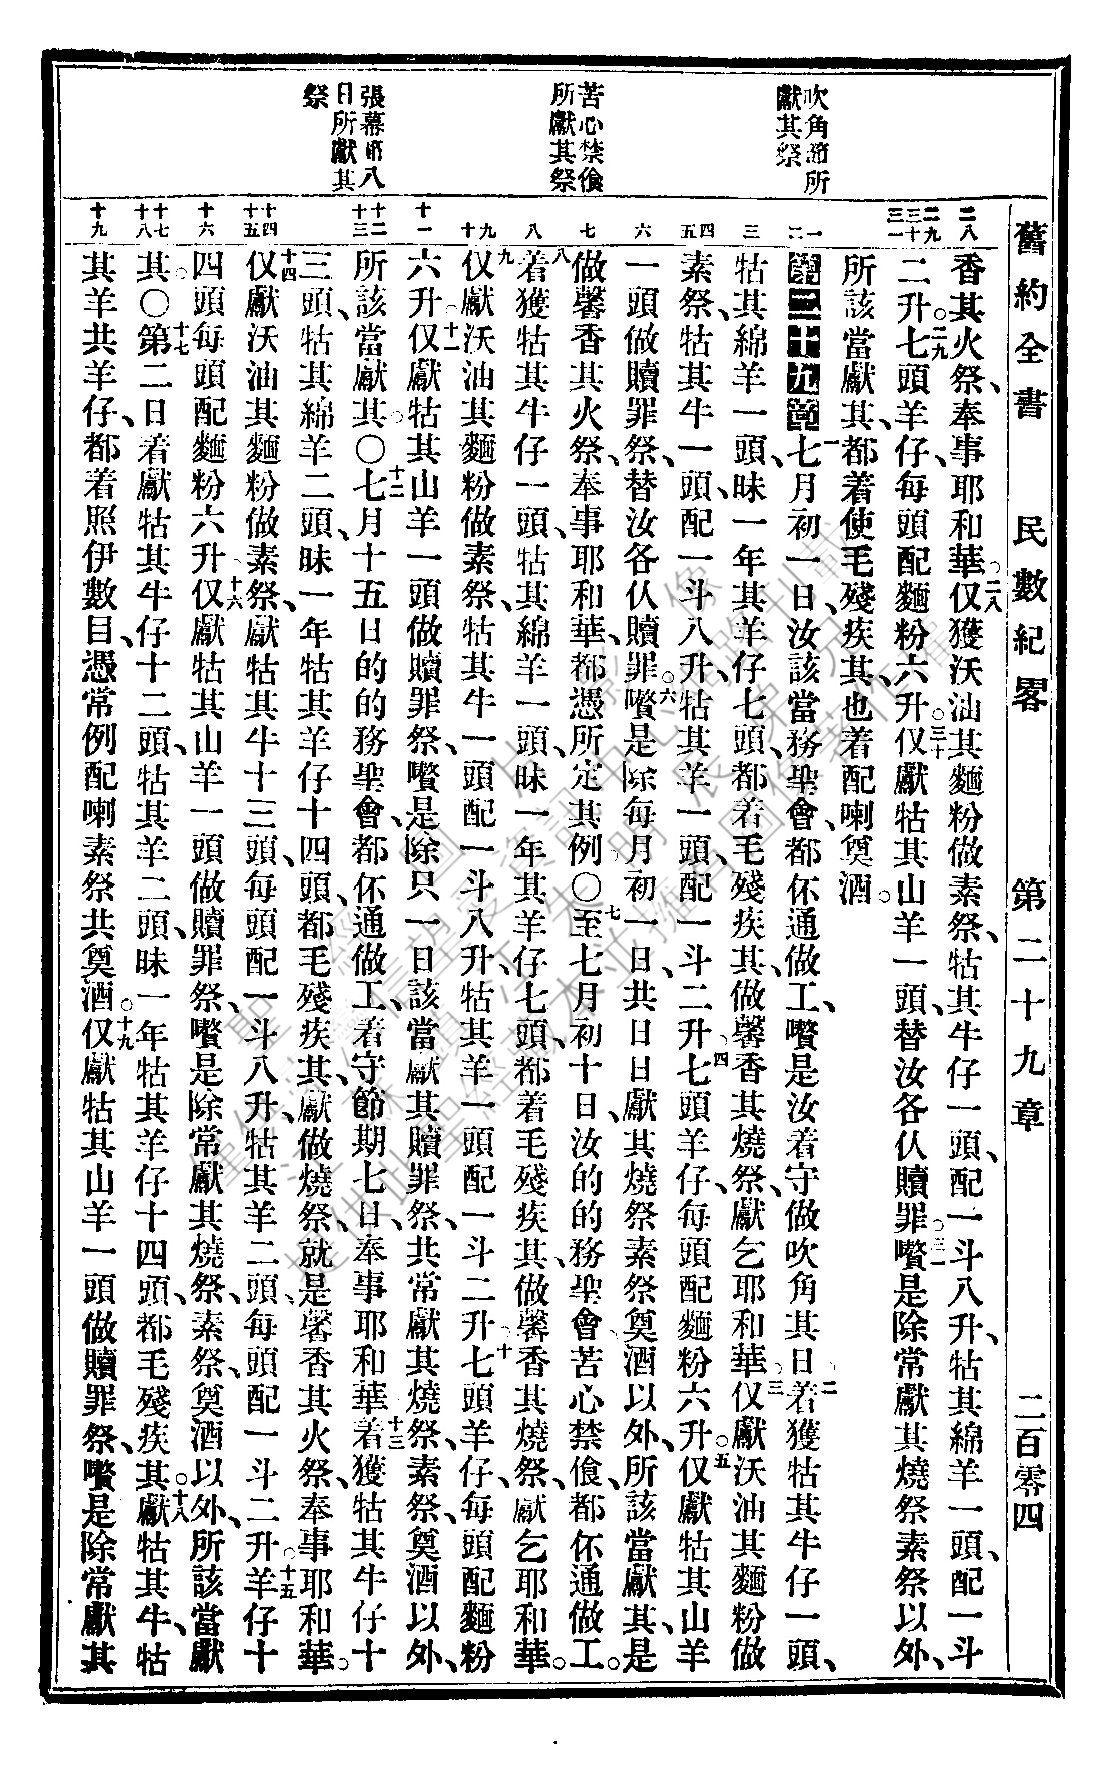 舊約全書　民數紀畧　第二十九章　二百零四
吹角節所
獻其祭
苦心禁飡
所獻其祭
張幕第八
日所獻其
祭
二八
香其火祭、奉事耶和華。二八仅獲沃油其麵粉做素祭、牯其牛仔一頭、配一斗八升、牯其綿羊一頭、配一斗
二九 三十 三一
二升、七頭羊仔、每頭配麵粉六升。三十仅獻牯其山羊一頭、替汝各仈贖罪。三一嚽是除常獻其燒祭素祭以外、
所該當獻其、都着使毛殘疾其、也着配喇奠酒。
一 二
第二十九章 一七月初一日、汝該當務聖會、都伓通做工、嚽是汝着守做吹角其日。二着獲牯其牛仔一頭、
三
牯其綿羊一頭、昧一年其羊仔七頭、都着毛殘疾其、做馨香其燒祭、獻乞耶和華。三仅獻沃油其麵粉做
四 五
素祭、牯其牛一頭、配一斗八升、牯其羊一頭、配一斗二升、四七頭羊仔、每頭配麵粉六升。五仅獻牯其山羊
六
一頭做贖罪祭、替汝各仈贖罪。六嚽是除每月初一日、共日日獻其燒祭素祭奠酒以外、所該當獻其、是
七
做馨香其火祭、奉事耶和華、都憑所定其例。〇七至七月初十日、汝的的務聖會、苦心禁飡、都伓通做工。
八
八着獲牯其牛仔一頭、牯其綿羊一頭、昧一年其羊仔七頭、都着毛殘疾其、做馨香其燒祭、獻乞耶和華。
九 十
九仅獻沃油其麵粉做素祭、牯其牛一頭配一斗八升、牯其羊一頭、配一斗二升、十七頭羊仔、每頭配麵粉
十一
六升。十一仅獻牯其山羊一頭做贖罪祭、嚽是除只一日該當獻其贖罪祭、共常獻其燒祭、素祭、奠酒以外、
十二 十三
所該當獻其。〇十二七月十五日的的務聖會、都伓通做工、着守節期七日、奉事耶和華。十三着獲牯其牛仔十
三頭、牯其綿羊二頭、昧一年牯其羊仔十四頭、都毛殘疾其、獻做燒祭、就是馨香其火祭、奉事耶和華。
十四 十五
十四仅獻沃油其麵粉做素祭、獻牯其牛十三頭、每頭配一斗八升、牯其羊二頭、每頭配一斗二升、十五羊仔十
十六
四頭、每頭配麵粉六升、十六仅獻牯其山羊一頭做贖罪祭、嚽是除常獻其燒祭、素祭、奠酒以外、所該當獻
十七 十八
其。〇十七第二日着獻牯其牛仔十二頭、牯其羊二頭、昧一年牯其羊仔十四頭、都毛殘疾其。十八獻牯其牛、牯
十九
其羊共羊仔、都着照伊數目、憑常例配喇素祭共奠酒。十九仅獻牯其山羊一頭做贖罪祭、嚽是除常獻其